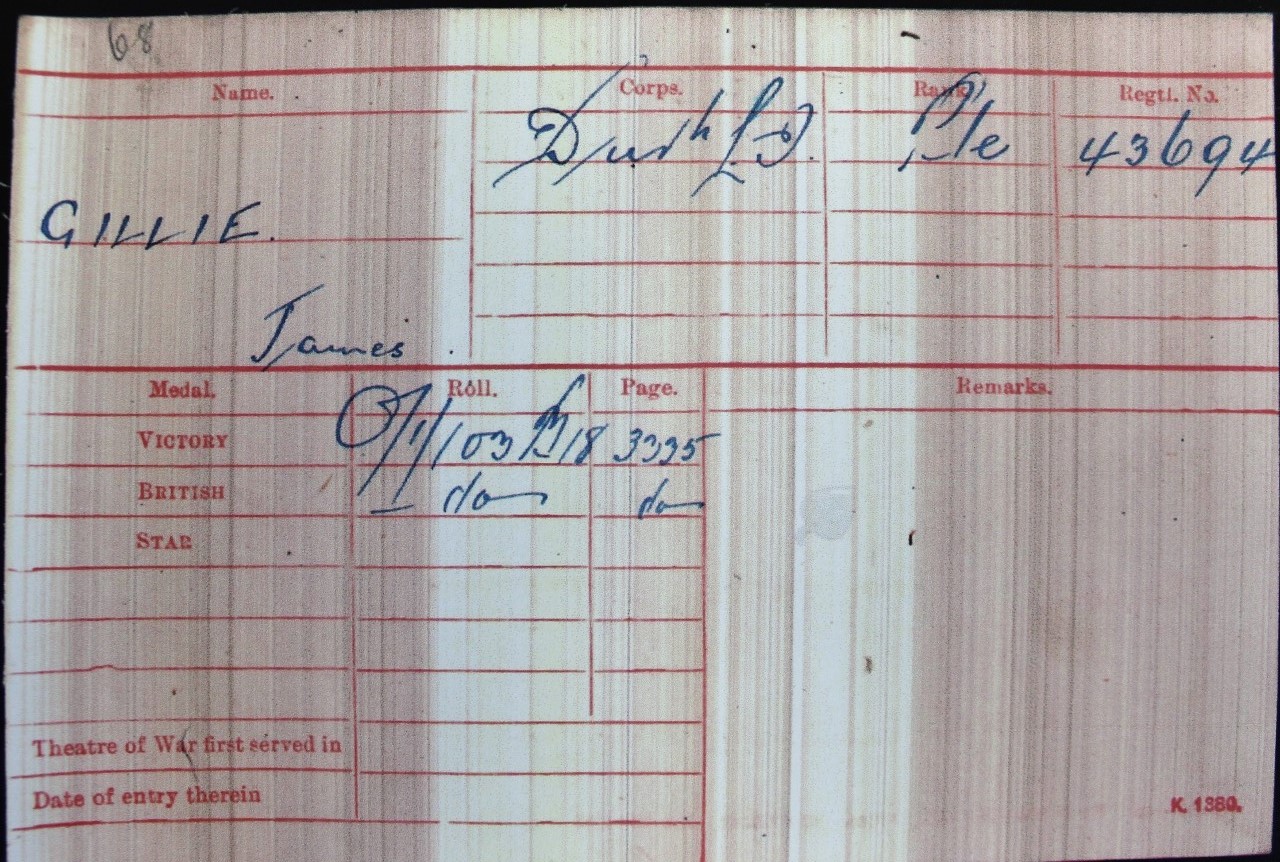 68
Name. Corps. Rank Regtl. No.
Durh L.I. Pte 43694
GILLIE.
James
Medal. Roll. Page. Remarks.
VICTORY O/1/103 B18 3335
BRITISH do do
STAR
Theatre of War first served in
Date of entry therein
K. 1380.